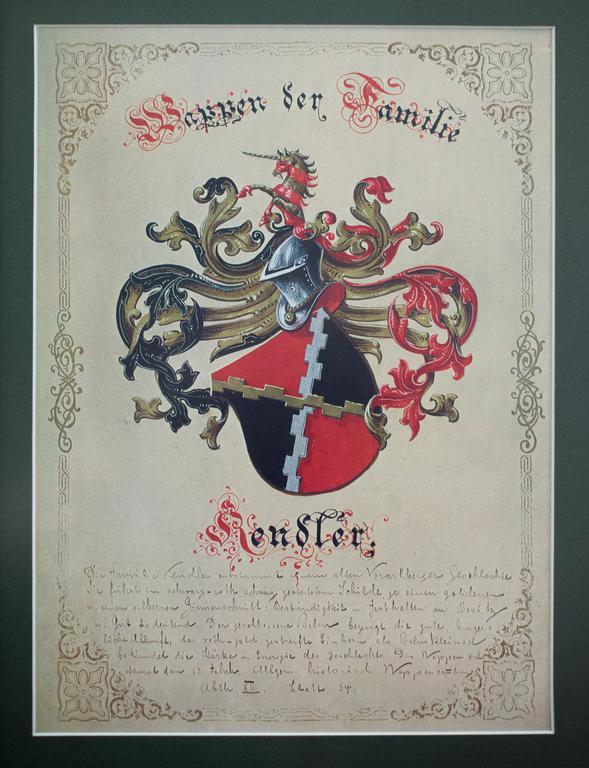 Wappen der Familie
Kendler.
Die Familie Kendler entstammt einem alten Vorarlberger Geschlechte
Sie führt im schwarz-roth schräg geviertetem Schilde je einen goldenen
u. einen silbernen Zinnenschnitt: Beständigkeit u. Festhalten an Besitz
u. Gut bedeutend. Der geschlossene Helm bezeugt die gute bürger-
liche Abkunft, das roth-gold gestreifte Einhorn als Helmkleinod
bekundet die Stärke u. Energie des Geschlechts. Das Wappen ent-
stammt dem 15. Jahrh. Allgem. historisch. Wappen
Abth. XIII. Blatt 34.